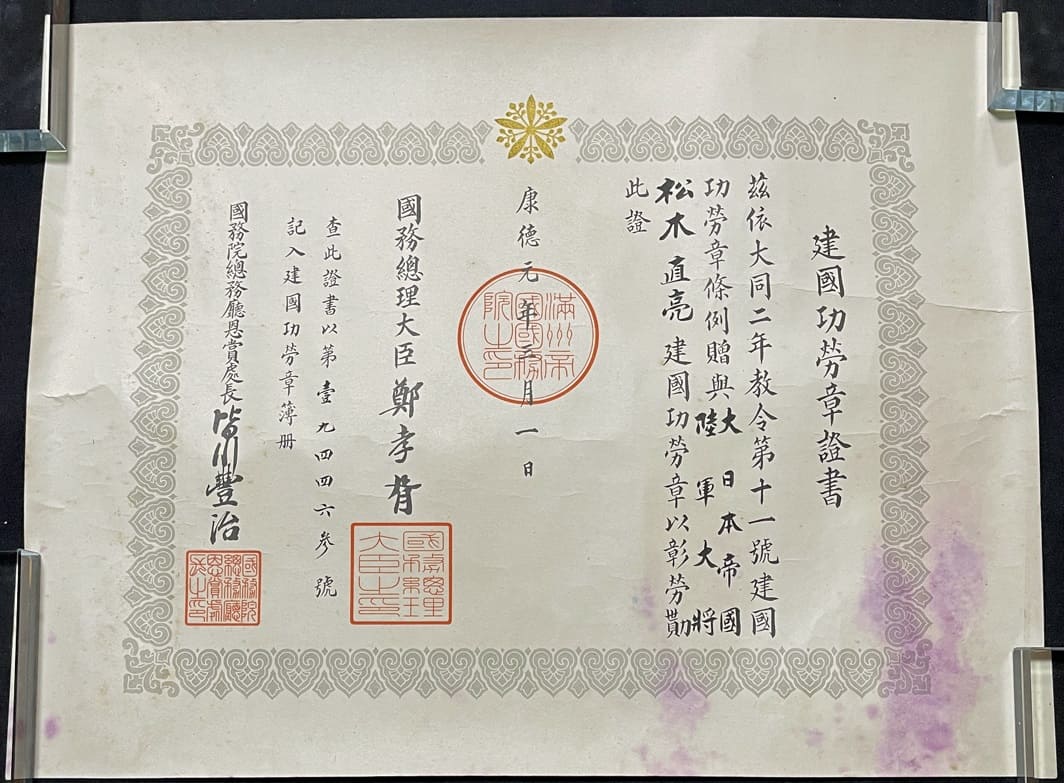 建國功勞章證書
茲依大同二年教令第十一號建國
功勞章條例贈與大日本帝國
陸軍大將
松木直亮建國功勞章以彰勞勩
此證
康德元年三月一日
滿州帝
國國務
院之印
國務總理大臣鄭孝胥
國務總理
大臣之印
查此證書以第壹九四四六參號
記入建國功勞章簿册
國務院總務廳恩賞處長皆川豐治
國務院
總務廳
恩賞處
長之印